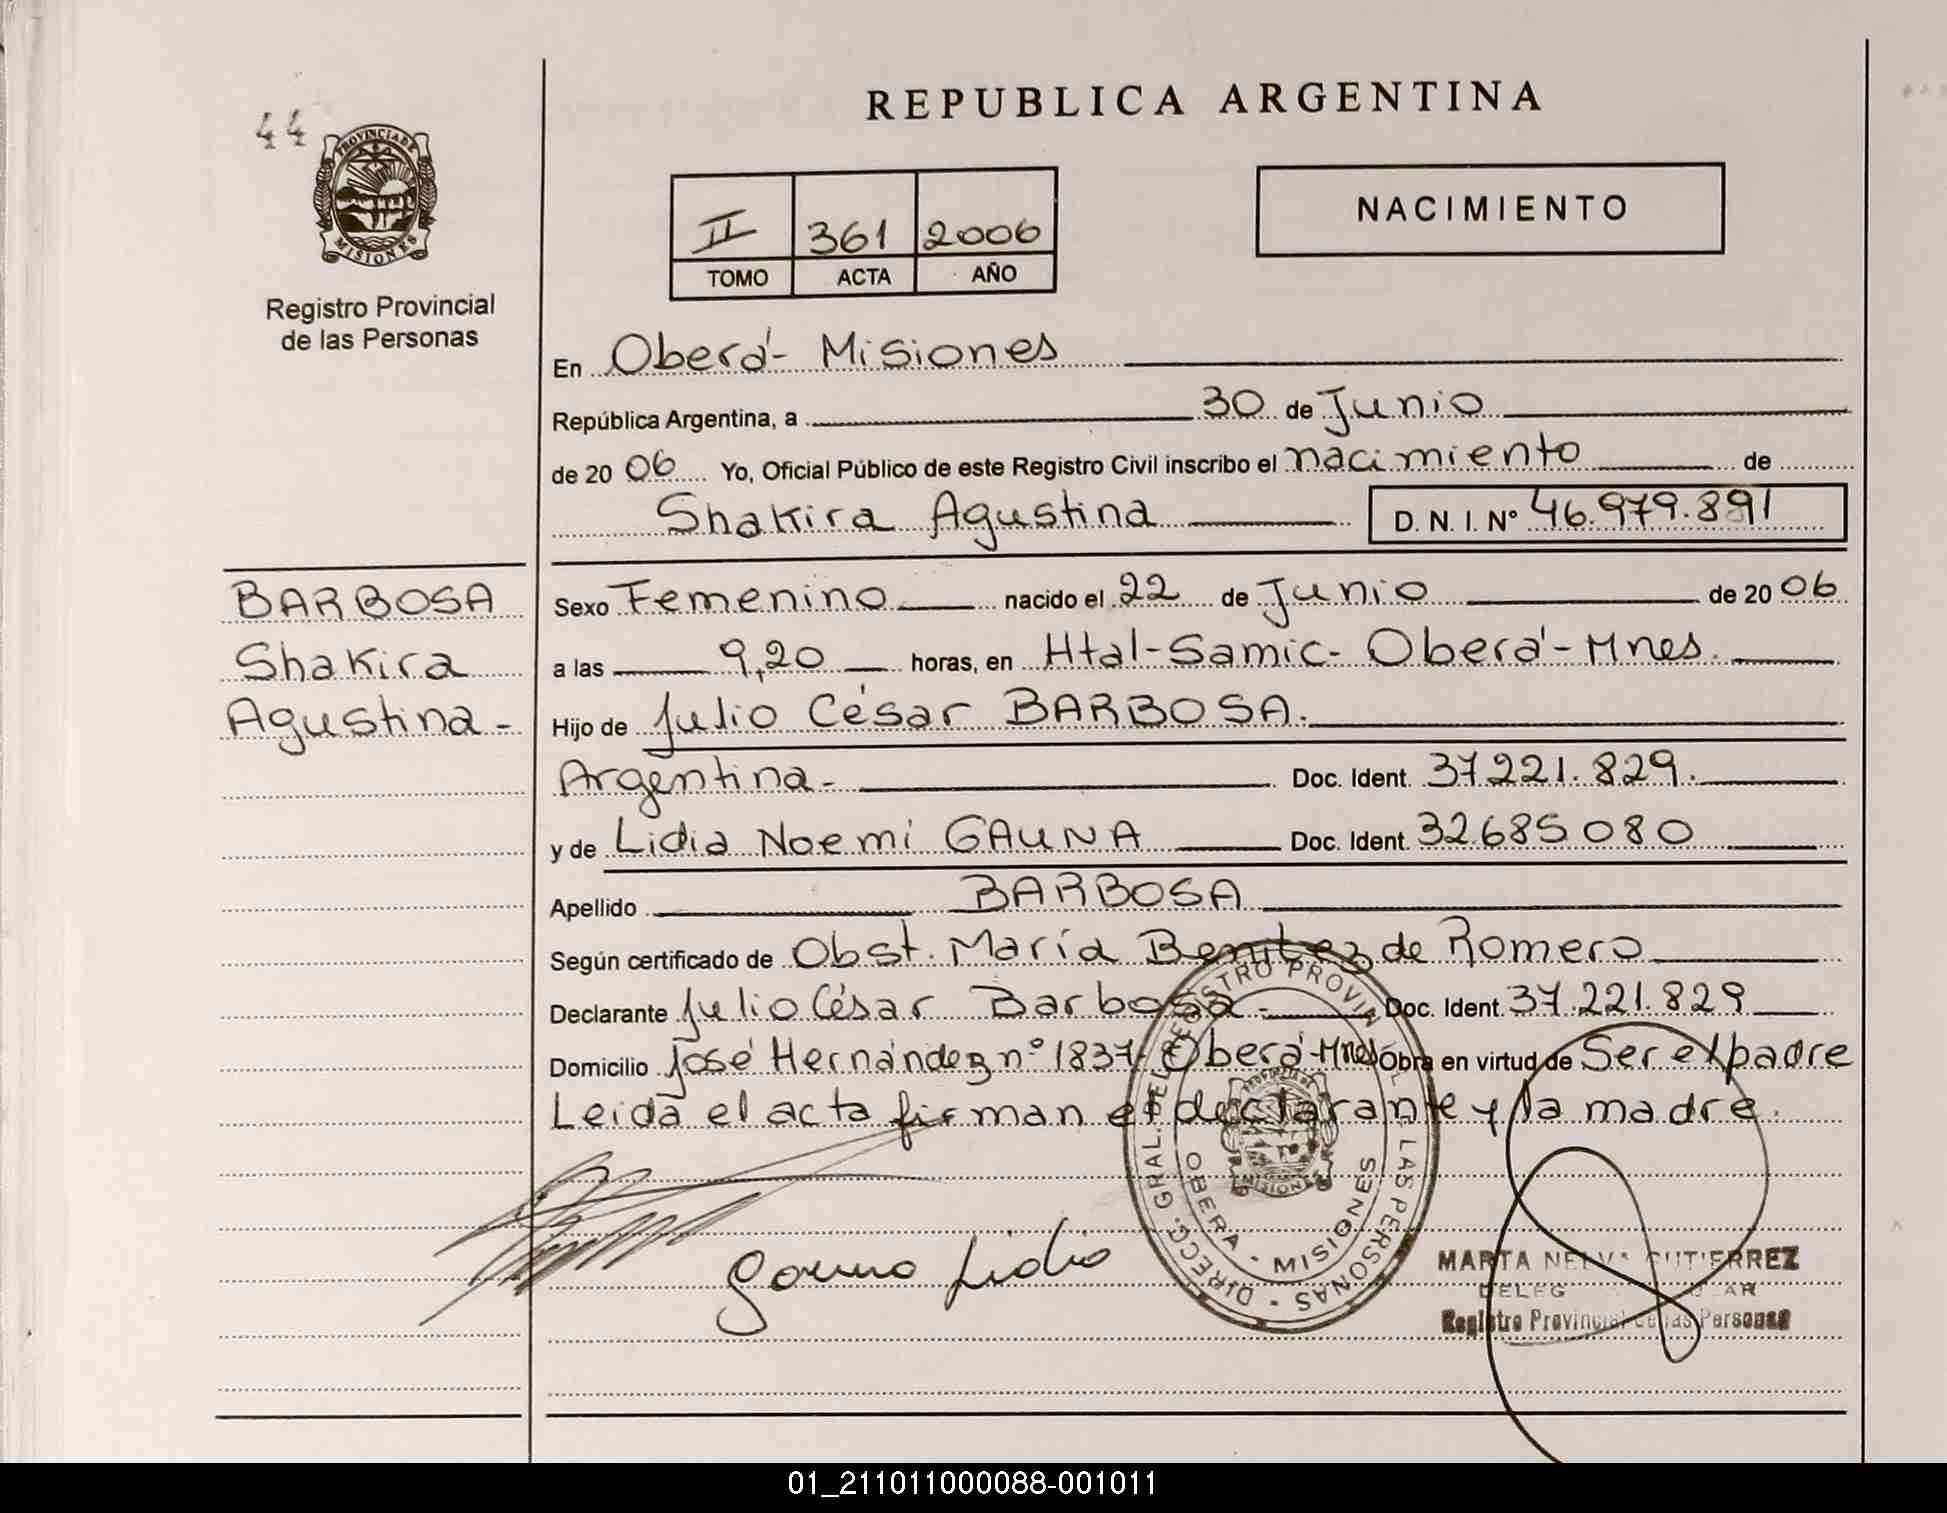 REPUBLICA ARGENTINA
44
PROVINCIA DE
MISIONES
Registro Provincial
de las Personas
NACIMIENTO
II 361 2006
TOMO ACTA AÑO
En Oberá - Misiones
República Argentina, a 30 de Junio
de 20 06 Yo, Oficial Público de este Registro Civil inscribo el nacimiento de
Shakira Agustina D. N. I. Nº 46.979.891
BARBOSA
Shakira
Agustina -
Sexo Femenino nacido el 22 de Junio de 20 06
a las 9,20 horas, en Htal - Samic - Oberá - Mnes.
Hijo de Julio César BARBOSA.
Argentina - Doc. Ident. 37.221.829.
y de Lidia Noemi GAUNA Doc. Ident. 32.685.080
Apellido BARBOSA
Según certificado de Obst. María Benítez de Romero
Declarante Julio César Barbosa - Doc. Ident. 37.221.829
Domicilio José Hernández nº 1837 - Oberá - Mnes Obra en virtud de Ser el padre
Leida el acta firman el declarante y la madre.
DIRECC. GRAL. DEL REGISTRO PROVIN LAS PERSONAS
PROVINCIA DE
MISIONES
OBERA - MISIONES
Gauna Lidia
MARTA NELVA GUTIERREZ
DELEG
Registro Provincial de las Personas
01_211011000088-001011